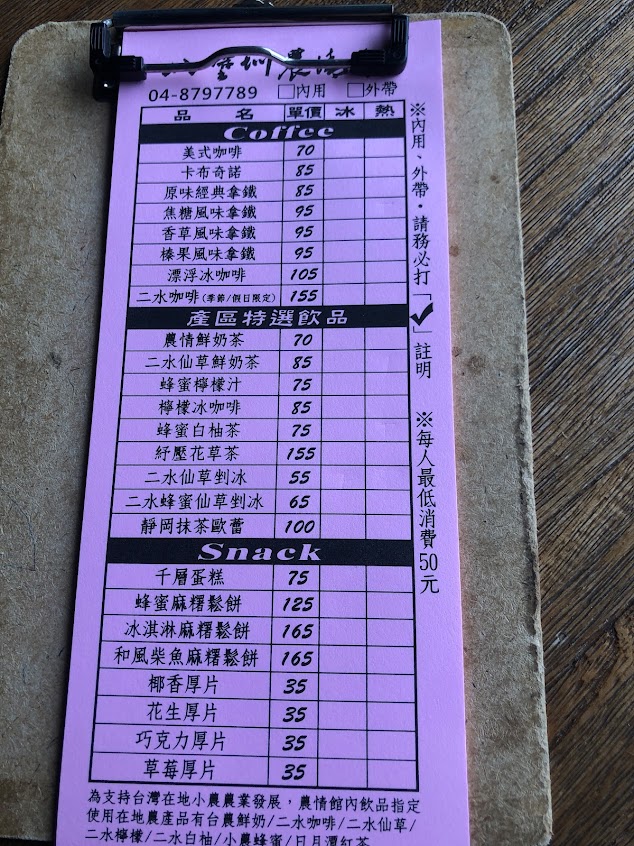 農情
04-8797789 □內用 □外帶
品名 單價 冰 熱
Coffee
美式咖啡 70
卡布奇諾 85
原味經典拿鐵 85
焦糖風味拿鐵 95
香草風味拿鐵 95
榛果風味拿鐵 95
漂浮冰咖啡 105
二水咖啡(季節/假日限定) 155
產區特選飲品
農情鮮奶茶 70
二水仙草鮮奶茶 85
蜂蜜檸檬汁 75
檸檬冰咖啡 85
蜂蜜白柚茶 75
紓壓花草茶 155
二水仙草剉冰 55
二水蜂蜜仙草剉冰 65
靜岡抹茶歐蕾 100
Snack
千層蛋糕 75
蜂蜜麻糬鬆餅 125
冰淇淋麻糬鬆餅 165
和風柴魚麻糬鬆餅 165
椰香厚片 35
花生厚片 35
巧克力厚片 35
草莓厚片 35
※內用、外帶,請務必打「✓」註明 ※每人最低消費50元
為支持台灣在地小農農業發展,農情館內飲品指定
使用在地農產品有台農鮮奶/二水咖啡/二水仙草/
二水檸檬/二水白柚/小農蜂蜜/日月潭紅茶